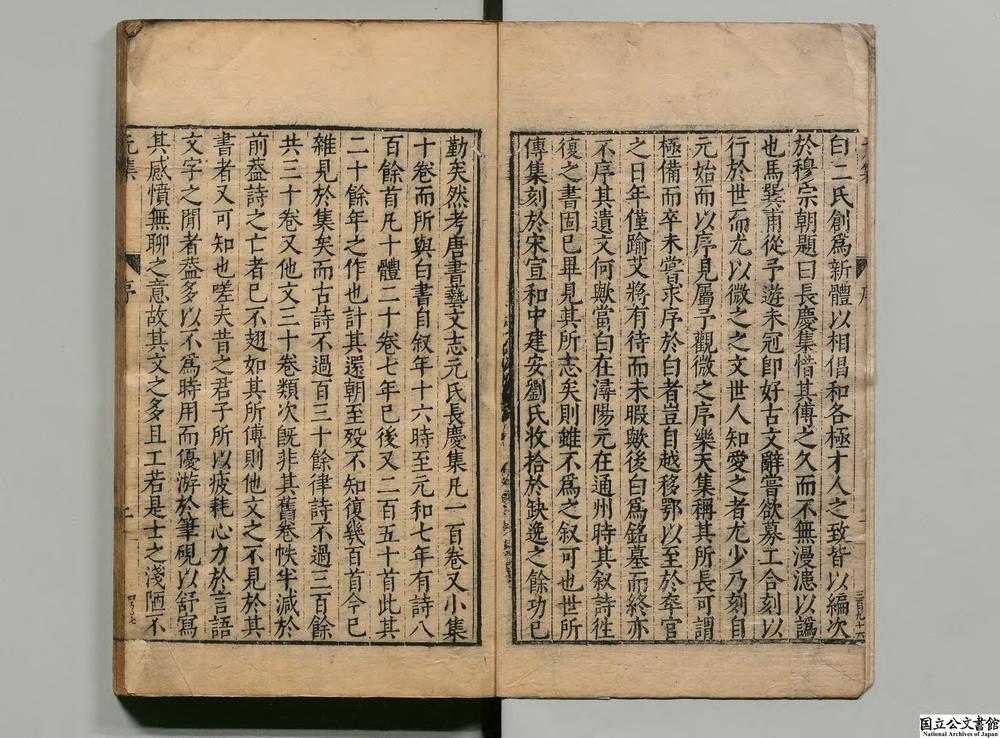 白二氏創爲新體以相倡和各極才人之致皆以編次
於穆宗朝題曰長慶集惜其傳之久而不無漫漶以譌
也馬巽甫從予遊未冠卽好古文辭嘗欲募工合刻以
行於世而尤以微之之文世人知愛之者尤少乃刻自
元始而以序見屬予觀微之序樂天集稱其所長可謂
極備而卒未嘗求序於白者豈自越移鄂以至於卒官
之日年僅踰艾將有待而未暇歟後白爲銘墓而終亦
不序其遺文何歟當白在潯陽元在通州時其叙詩徃
復之書固已畢見其所志矣則雖不爲之叙可也世所
傳集刻於宋宣和中建安劉氏收拾於缺逸之餘功已
三百九十六
勤矣然考唐書藝文志元氏長慶集凡一百卷又小集
十卷而所與白書自叙年十六時至元和七年有詩八
百餘首凡十體二十卷七年已後又二百五十首此其
二十餘年之作也計其還朝至殁不知復幾百首今已
雜見於集矣而古詩不過百三十餘律詩不過三百餘
共三十卷又他文三十卷類次旣非其舊卷帙半減於
前葢詩之亡者已不翅如其所傳則他文之不見於其
書者又可知也嗟夫昔之君子所以疲耗心力於言語
文字之閒者葢多以不爲時用而優游於筆硯以舒寫
其感憤無聊之意故其文之多且工若是士之淺陋不
元集
序
国立公文書館
National Archives of Japan